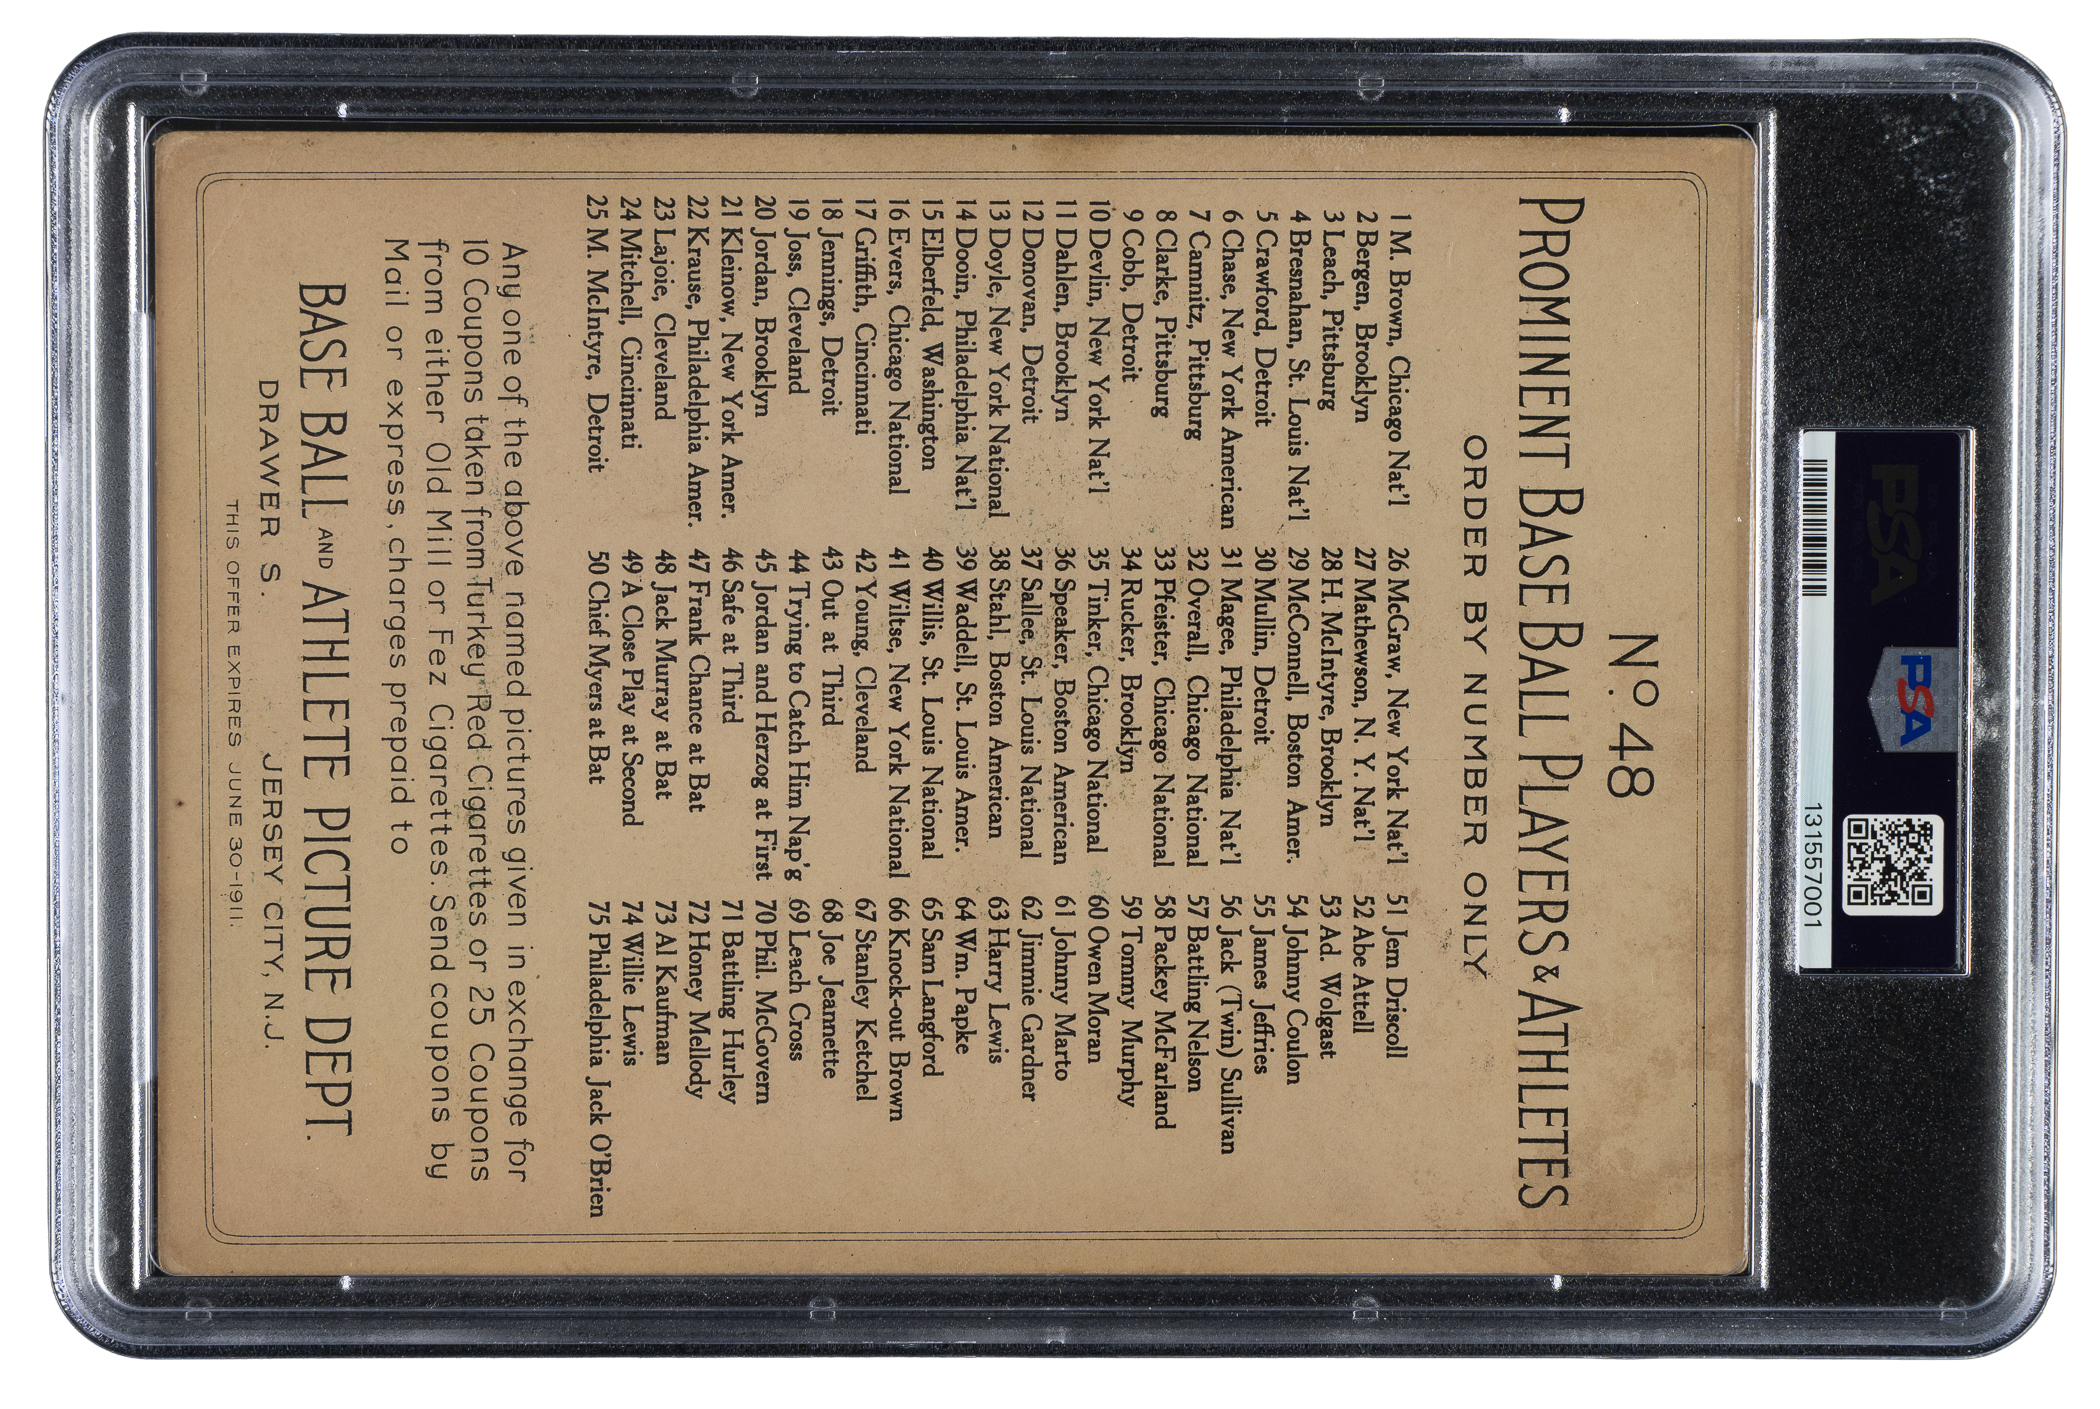 PSA
PSA
131557001
Nº. 48
PROMINENT BASE BALL PLAYERS & ATHLETES
ORDER BY NUMBER ONLY
1 M. Brown, Chicago Nat'l
2 Bergen, Brooklyn
3 Leach, Pittsburg
4 Bresnahan, St. Louis Nat'l
5 Crawford, Detroit
6 Chase, New York American
7 Camnitz, Pittsburg
8 Clarke, Pittsburg
9 Cobb, Detroit
10 Devlin, New York Nat'l
11 Dahlen, Brooklyn
12 Donovan, Detroit
13 Doyle, New York National
14 Dooin, Philadelphia Nat'l
15 Elberfeld, Washington
16 Evers, Chicago National
17 Griffith, Cincinnati
18 Jennings, Detroit
19 Joss, Cleveland
20 Jordan, Brooklyn
21 Kleinow, New York Amer.
22 Krause, Philadelphia Amer.
23 Lajoie, Cleveland
24 Mitchell, Cincinnati
25 M. McIntyre, Detroit
26 McGraw, New York Nat'l
27 Mathewson, N. Y. Nat'l
28 H. McIntyre, Brooklyn
29 McConnell, Boston Amer.
30 Mullin, Detroit
31 Magee, Philadelphia Nat'l
32 Overall, Chicago National
33 Pfeister, Chicago National
34 Rucker, Brooklyn
35 Tinker, Chicago National
36 Speaker, Boston American
37 Sallee, St. Louis National
38 Stahl, Boston American
39 Waddell, St. Louis Amer.
40 Willis, St. Louis National
41 Wiltse, New York National
42 Young, Cleveland
43 Out at Third
44 Trying to Catch Him Nap'g
45 Jordan and Herzog at First
46 Safe at Third
47 Frank Chance at Bat
48 Jack Murray at Bat
49 A Close Play at Second
50 Chief Myers at Bat
51 Jem Driscoll
52 Abe Attell
53 Ad. Wolgast
54 Johnny Coulon
55 James Jeffries
56 Jack (Twin) Sullivan
57 Battling Nelson
58 Packey McFarland
59 Tommy Murphy
60 Owen Moran
61 Johnny Marto
62 Jimmie Gardner
63 Harry Lewis
64 Wm. Papke
65 Sam Langford
66 Knock-out Brown
67 Stanley Ketchel
68 Joe Jeannette
69 Leach Cross
70 Phil. McGovern
71 Battling Hurley
72 Honey Mellody
73 Al Kaufman
74 Willie Lewis
75 Philadelphia Jack O'Brien
Any one of the above named pictures given in exchange for
10 Coupons taken from Turkey Red Cigarettes or 25 Coupons
from either Old Mill or Fez Cigarettes. Send coupons by
Mail or express, charges prepaid to
BASE BALL AND ATHLETE PICTURE DEPT.
DRAWER S. JERSEY CITY, N.J.
THIS OFFER EXPIRES JUNE 30-1911.